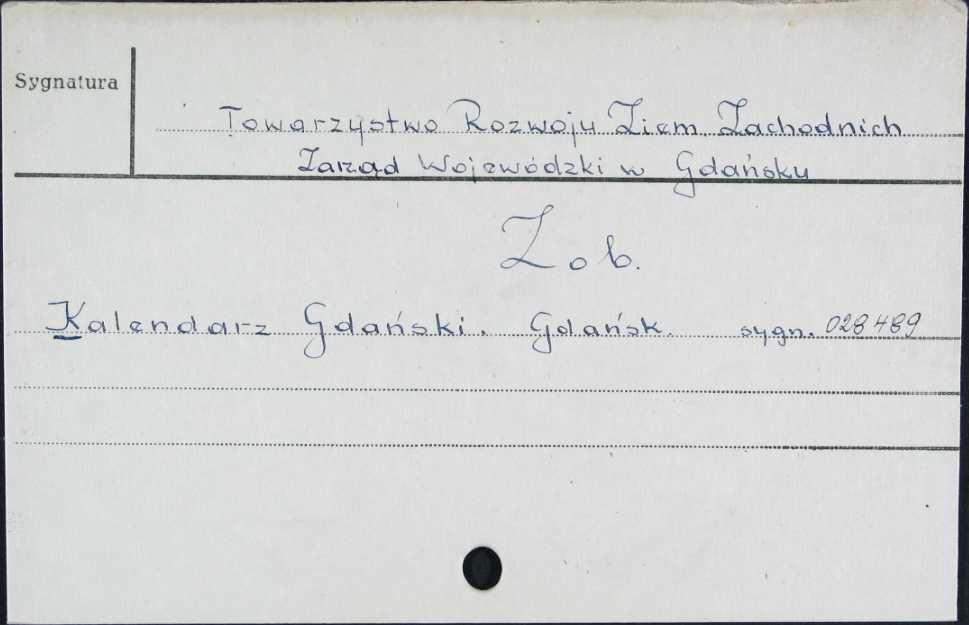 Sygnatura
Towarzystwo Rozwoju Ziem Zachodnich
Zarząd Wojewódzki w Gdańsku
Zob.
Kalendarz Gdański. Gdańsk. sygn. 028489